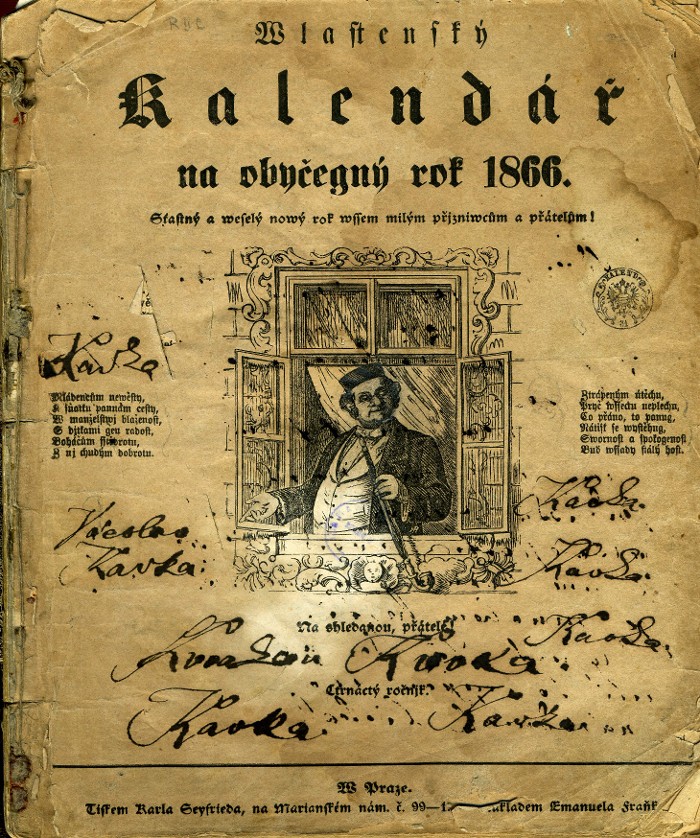 Wlastenský
Kalendář
na obyčegný rok 1866.
Sťastný a weselý nowý rok wssem milým přjzniwcům a přátelům!
Kavka
Mládencům newěsty,
K sňatku pannám cesty,
W manželstwj blaženost,
S djtkami gen radost,
Boháčům sstědrotu,
Z nj chudým dobrotu.
Ztrápeným útěchu,
Pryč wssecku neplechu,
Co přáno, to panug,
Nátisk se wystěhug,
Swornost a spokogenost
Buď wssady stálý host.
Kavka
Václav
Kavka
Kavka
Na shledanou, přátelé!
Kavka
Kavka
Čtrnáctý ročnjk.
Kavka
Kavka
W Praze.
Tiskem Karla Seyfrieda, na Marianském nám. č. 99—1. nákladem Emanuela